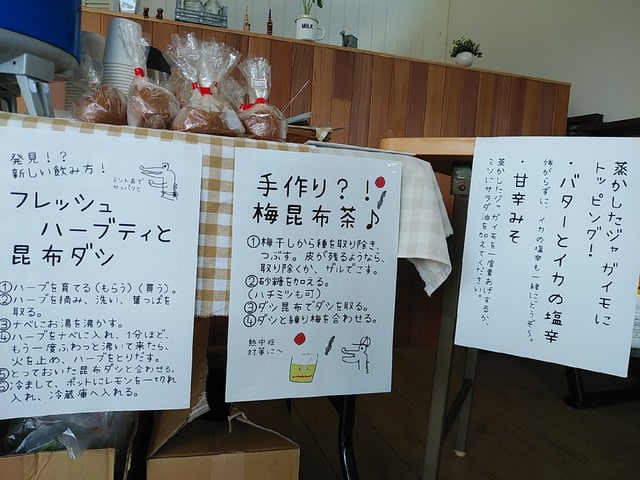 発見！？
新しい飲み方！
ミント系で
サッパリと
フレッシュ
ハーブティと
昆布ダシ
①ハーブを育てる(もらう)(買う)。
②ハーブを摘み、洗い、葉っぱを
取る。
③ナベにお湯を沸かす。
④ハーブをナベに入れ、1分ほど、
もう一度ふわっと沸いて来たら、
火を止め、ハーブをとりだす。
⑤とっておいた昆布ダシと合わせる。
⑥冷まして、ポットにレモンを一切れ
入れ、冷蔵庫へ入れる。
手作り？！
梅昆布茶♪
①梅干しから種を取り除き、
つぶす。皮が残るようなら、
取り除くか、ザルでこす。
②砂糖を加える。
(ハチミツも可)
③ダシ昆布でダシを取る。
④ダシと練り梅を合わせる。
熱中症
対策に〜
MILK
蒸かしたジャガイモに
トッピング！
・バターとイカの塩辛
怖がらずに、イカの塩辛も一緒にどうぞ。
・甘辛みそ
蒸かしたジャガイモを一度素あげするか、
ミソにサラダ油を加えてください。